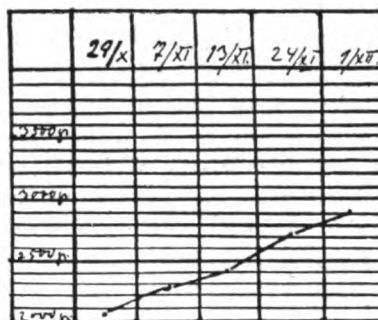 29/X 7/XI 13/XI. 24/XI 1/XII.
3500р.
3000р.
2500р.
2000р.